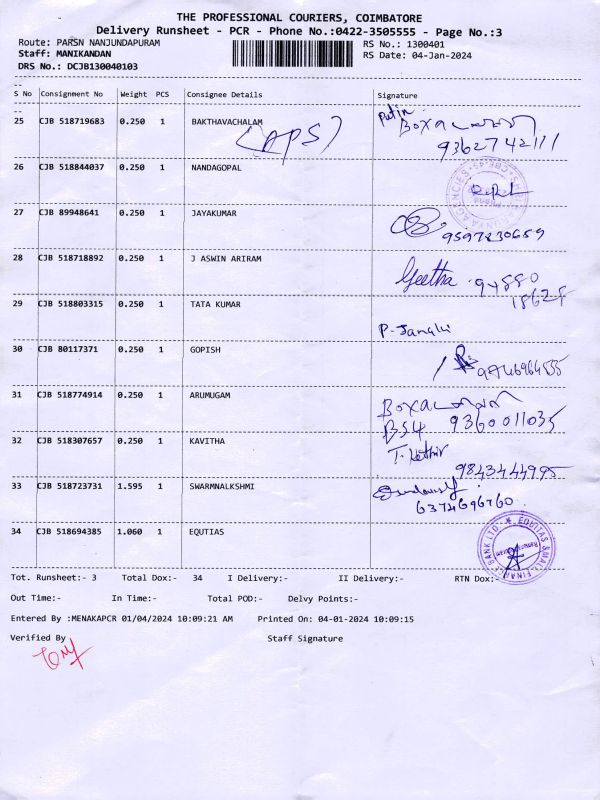 THE PROFESSIONAL COURIERS, COIMBATORE
Delivery Runsheet - PCR - Phone No.:0422-3505555 - Page No.:3
Route: PARSN NANJUNDAPURAM RS No.: 1300401
Staff: MANIKANDAN RS Date: 04-Jan-2024
DRS No.: DCJB130040103
S No Consignment No Weight PCS Consignee Details Signature
25 CJB 518719683 0.250 1 BAKTHAVACHALAM
(APS)
9362742111
26 CJB 518844037 0.250 1 NANDAGOPAL
27 CJB 89948641 0.250 1 JAYAKUMAR
9597830659
28 CJB 518718892 0.250 1 J ASWIN ARIRAM Geetha 94880
18628
29 CJB 518803315 0.250 1 TATA KUMAR
P. Janaki
30 CJB 80117371 0.250 1 GOPISH
31 CJB 518774914 0.250 1 ARUMUGAM
BS4 9360011035
32 CJB 518307657 0.250 1 KAVITHA T. Kathir
9843444995
33 CJB 518723731 1.595 1 SWARMNALKSHMI
6374696760
34 CJB 518694385 1.060 1 EQUTIAS EQUITAS SMALL FINANCE BANK LTD.
Tot. Runsheet:- 3 Total Dox:- 34 I Delivery:- II Delivery:- RTN Dox:-
Out Time:- In Time:- Total POD:- Delvy Points:-
Entered By :MENAKAPCR 01/04/2024 10:09:21 AM Printed On: 04-01-2024 10:09:15
Verified By Staff Signature